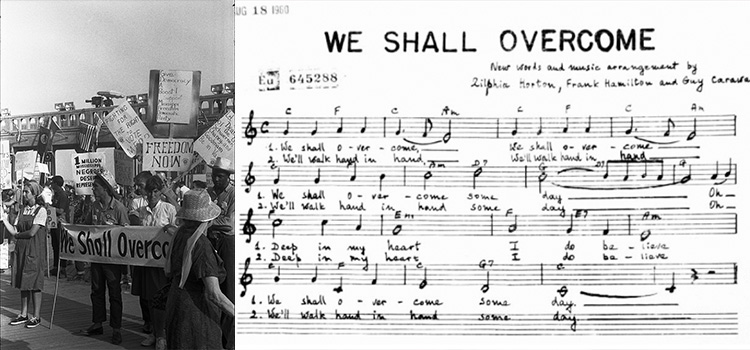 FREEDOM
NOW
1 MILLION
NEGROES
We Shall Overco
UG 18 1960
WE SHALL OVERCOME
New words and music arrangement by
Zilphia Horton, Frank Hamilton and Guy Carawa
Eu 645288
C F C Am C F C Am
1. We shall o - ver - come, We shall o - ver - come
2. We'll walk hand in hand We'll walk hand in hand
C F C Am D7 G D7 G
1. We shall o - ver - come some day Oh
2. We'll walk hand in hand some day Oh
F Em F E7 Am
1. Deep in my heart I do be - lieve
2. Deep in my heart I do be - lieve
C F C G7 C
1. We shall o - ver - come some day.
2. We'll walk hand in hand some day